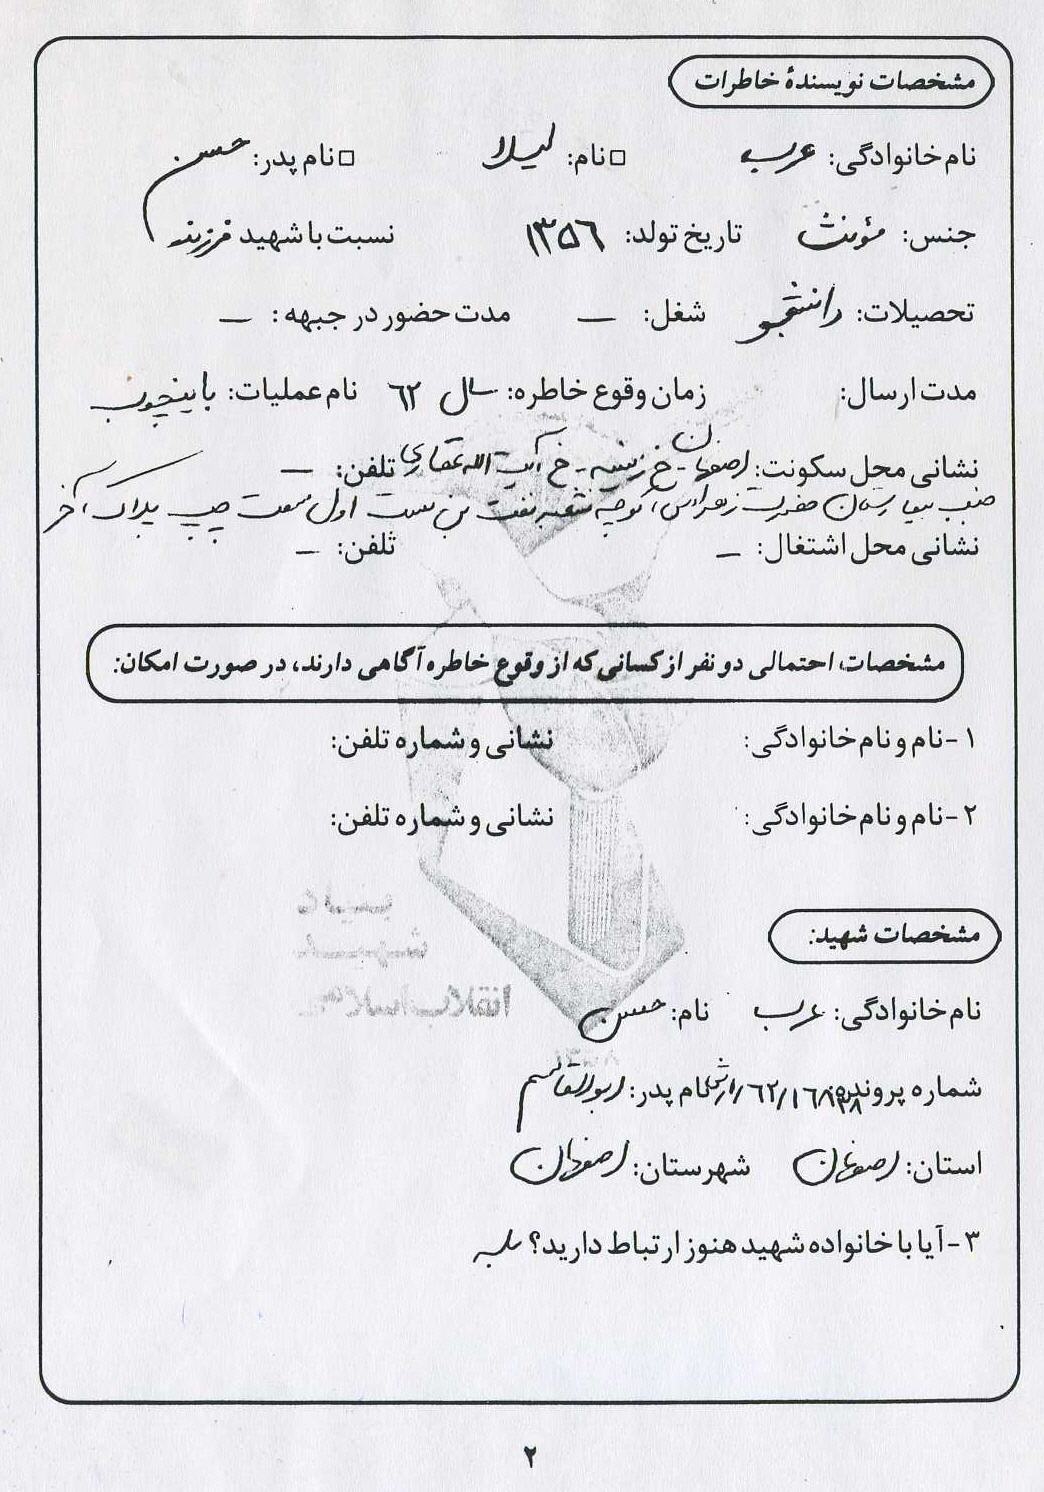 مشخصات نویسندهٔ خاطرات
نام خانوادگی: عرب □ نام: لیلا □ نام پدر: حسن
جنس: مؤنث تاریخ تولد: ۱۳۵۶ نسبت با شهید فرزند
تحصیلات: دانشجو شغل: — مدت حضور در جبهه: —
مدت ارسال: زمان وقوع خاطره: سال ۶۲ نام عملیات: پاینچوب
نشانی محل سکونت: اصفهان - خ زینبیه - خ آیت الله غفاری تلفن: —
جنب بیمارستان حضرت زهرا (س) کوچه شعبه نفت بن بست اول سمت چپ پلاک آخر
نشانی محل اشتغال: — تلفن: —
مشخصات احتمالی دو نفر از کسانی که از وقوع خاطره آگاهی دارند، در صورت امکان:
۱- نام و نام خانوادگی: نشانی و شماره تلفن:
۲- نام و نام خانوادگی: نشانی و شماره تلفن:
بنیاد
شهید
انقلاب اسلامی
مشخصات شهید:
نام خانوادگی: عرب نام: حسن
شماره پرونده: نام پدر: ابوالقاسم
استان: اصفهان شهرستان: اصفهان
۳- آیا با خانواده شهید هنوز ارتباط دارید؟ بله
۲